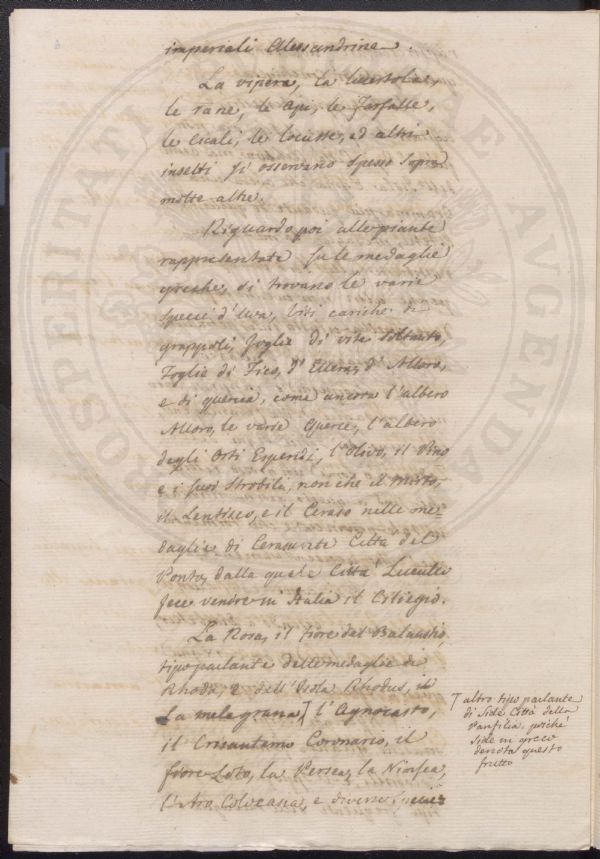 imperiali Alessandrine.
La vipera, la lucertola,
le rane, le api, le Farfalle,
le cicale, le locuste, ed altri
insetti si osservano spesso sopra
molte altre.
Riguardo poi alle piante
rappresentate su le medaglie
greche, si trovano le varie
specie d'uva, viti cariche di
grappoli, foglie di vite soltanto,
Foglie di Fico, d'Ellera, d'Alloro,
e di quercia, come ancora l'albero
Alloro, le varie Querce, l'albero
degli Orti Esperidi, l'Olivo, il Pino
e i suoi Strobili, non che il Mirto,
il Lentisco, e il Ceraso nelle me-
daglie di Cerasunte Città del
Ponto, dalla quale Città Lucullo
fece venire in Italia il Ciliegio.
La Rosa, il fiore del Balaustio,
tipo parlante delle medaglie di
Rhoda, e dell'Isola Rhodus,
la melagrana, l'Agnocasto,
il Crisantemo Coronario, il
fiore Loto, la Persea, la Ninfea,
l'Aro Colocasia, e diverse specie
altro tipo parlante
di Side Città della
Panfilia, poiché
side in greco
denota questo
frutto
PROSPERITATI PUBLICAE AVGENDAE